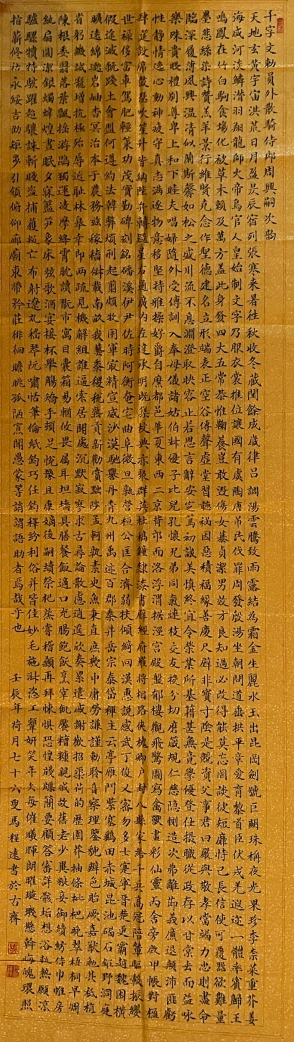 千字文勅員外散騎侍郎周興嗣次韻
天地玄黃宇宙洪荒日月盈昃辰宿列張寒來暑往秋收冬藏閏餘成歲律呂調陽雲騰致雨露結為霜金生麗水玉出崑岡劍號巨闕珠稱夜光果珍李柰菜重芥薑
海咸河淡鱗潛羽翔龍師火帝鳥官人皇始制文字乃服衣裳推位讓國有虞陶唐弔民伐罪周發湯坐朝問道垂拱平章愛育黎首臣伏戎羌遐邇一體率賓歸王
鳴鳳在竹白駒食場化被草木賴及萬方蓋此身髮四大五常恭惟鞠養豈敢毀傷女慕貞潔男效才良知過必改得能莫忘罔談彼短靡恃己長信使可覆器欲難量
墨悲絲染詩讚羔羊景行維賢克念作聖德建名立形端表正空谷傳聲虛堂習聽禍因惡積福緣善慶尺璧非寶寸陰是競資父事君曰嚴與敬孝當竭力忠則盡命
臨深履薄夙興溫凊似蘭斯馨如松之盛川流不息淵澄取映容止若思言辭安定篤初誠美慎終宜令榮業所基籍甚無竟學優登仕攝職從政存以甘棠去而益詠
樂殊貴賤禮別尊卑上和下睦夫唱婦隨外受傅訓入奉母儀諸姑伯叔猶子比兒孔懷兄弟同氣連枝交友投分切磨箴規仁慈隱惻造次弗離節義廉退顛沛匪虧
性靜情逸心動神疲守真志滿逐物意移堅持雅操好爵自縻都邑華夏東西二京背邙面洛浮渭據涇宮殿盤鬱樓觀飛驚圖寫禽獸畫彩仙靈丙舍傍啟甲帳對楹
肆筵設席鼓瑟吹笙升階納陛弁轉疑星右通廣內左達承明既集墳典亦聚群英杜稿鍾隸漆書壁經府羅將相路俠槐卿戶封八縣家給千兵高冠陪輦驅轂振纓
世祿侈富車駕肥輕策功茂實勒碑刻銘磻溪伊尹佐時阿衡奄宅曲阜微旦孰營桓公匡合濟弱扶傾綺回漢惠說感武丁俊乂密勿多士寔寧晉楚更霸趙魏困橫
假途滅虢踐土會盟何遵約法韓弊煩刑起翦頗牧用軍最精宣威沙漠馳譽丹青九州禹跡百郡秦并嶽宗泰岱禪主云亭雁門紫塞雞田赤城昆池碣石鉅野洞庭
曠遠綿邈巖岫杳冥治本於農務茲稼穡俶載南畝我藝黍稷稅熟貢新勸賞黜陟孟軻敦素史魚秉直庶幾中庸勞謙謹勅聆音察理鑒貌辨色貽厥嘉猷勉其祗植
省躬譏誡寵增抗極殆辱近恥林皋幸即兩疏見機解組誰逼索居閑處沉默寂寥求古尋論散慮逍遙欣奏累遣慼謝歡招渠荷的歷園莽抽條枇杷晚翠梧桐早凋
陳根委翳落葉飄颻遊鵾獨運凌摩絳霄耽讀翫市寓目囊箱易輶攸畏屬耳垣牆具膳餐飯適口充腸飽飫烹宰飢厭糟糠親戚故舊老少異糧妾御績紡侍巾帷房
紈扇圓潔銀燭煒煌晝眠夕寐藍筍象床弦歌酒宴接杯舉觴矯手頓足悅豫且康嫡後嗣續祭祀蒸嘗稽顙再拜悚懼恐惶牋牒簡要顧答審詳骸垢想浴執熱願涼
驢騾犢特駭躍超驤誅斬賊盜捕獲叛亡布射遼丸嵇琴阮嘯恬筆倫紙鈞巧任釣釋紛利俗並皆佳妙毛施淑姿工顰妍笑年矢每催曦暉朗曜璇璣懸斡晦魄環照
指薪修祜永綏吉劭矩步引領俯仰廊廟束帶矜莊徘徊瞻眺孤陋寡聞愚蒙等誚謂語助者焉哉乎也 壬辰年荷月七十六叟馬程遠書於古齊